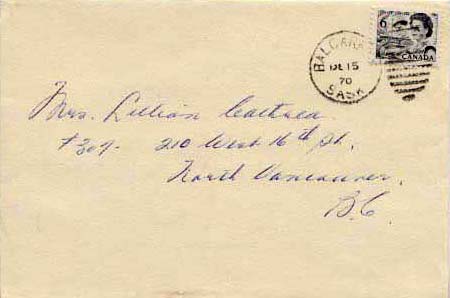 6
CANADA
BALCARRES
DE 15
70
SASK
Mrs. Lillian Cathrea
#307- 210 West 16th St.,
North Vancouver,
B.C.